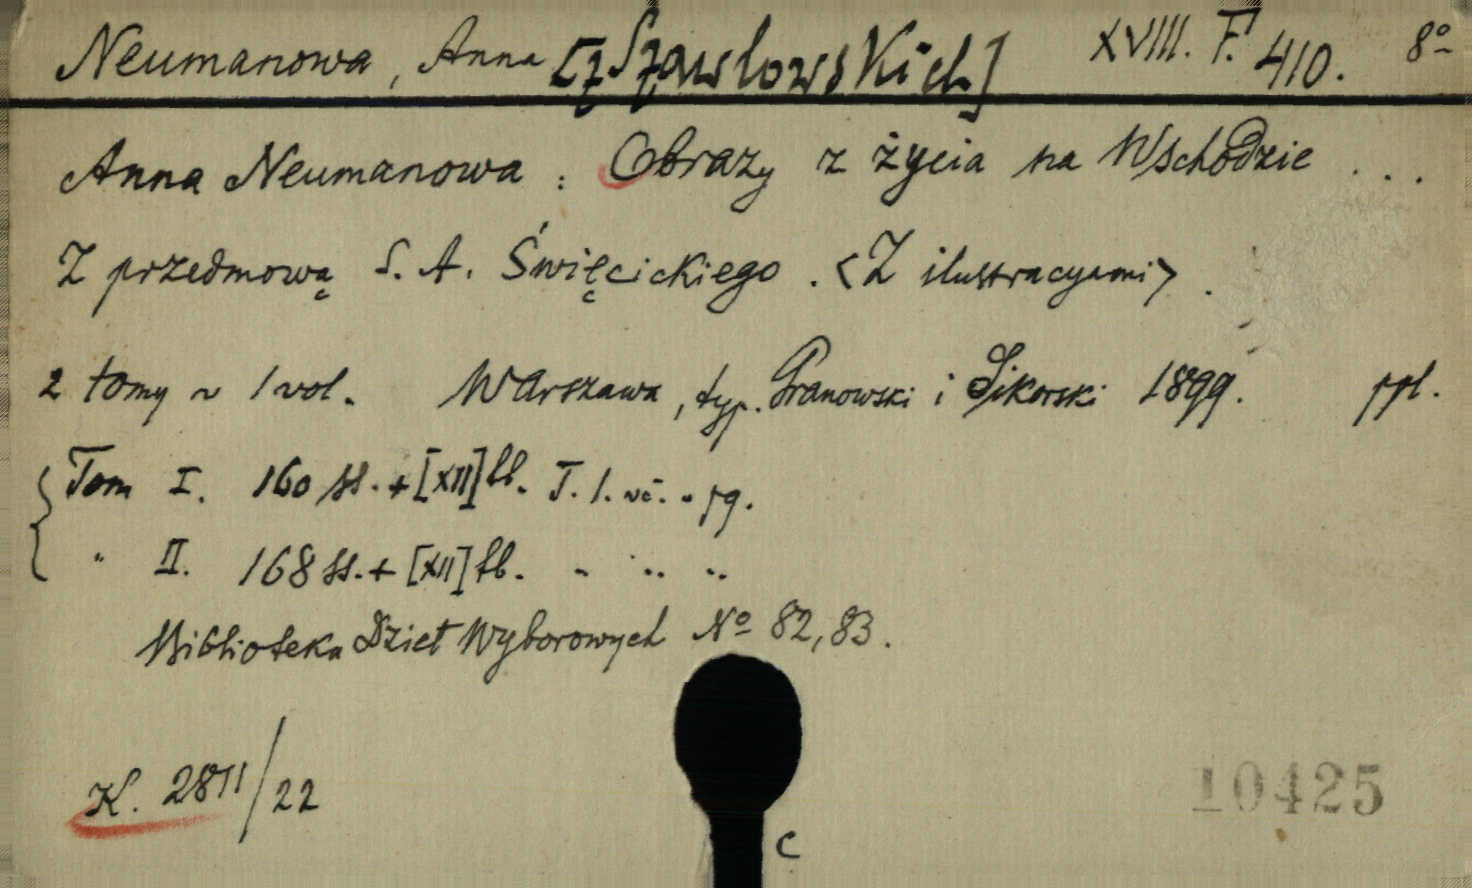 Neumanowa, Anna [z Szawłowskich] XVIII. F. 410. 8º
Anna Neumanowa: Obrazy z życia na Wschodzie ...
Z przedmową S. A. Święcickiego. <Z ilustracyami>.
2 tomy v 1 vol. Warszawa, typ. Granowski i Sikorski 1899. ppl.
Tom I. 160 ss. + [XII] ll. T. l. vč. pg.
" II. 168 ss. + [XII] ll. " " "
Biblioteka Dzieł Wyborowych Nº 82, 83.
K. 2811/22
10425
C